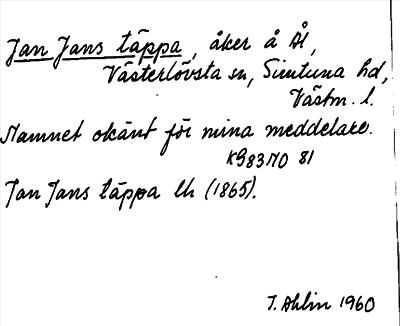 Jan Jans täppa, åker å Ål,
Västerlövsta sn, Simtuna hd,
Västm. l.
Namnet okänt för mina meddelare.
KG83NO 81
Jan Jans täppa lh (1865).
T. Ahlin 1960